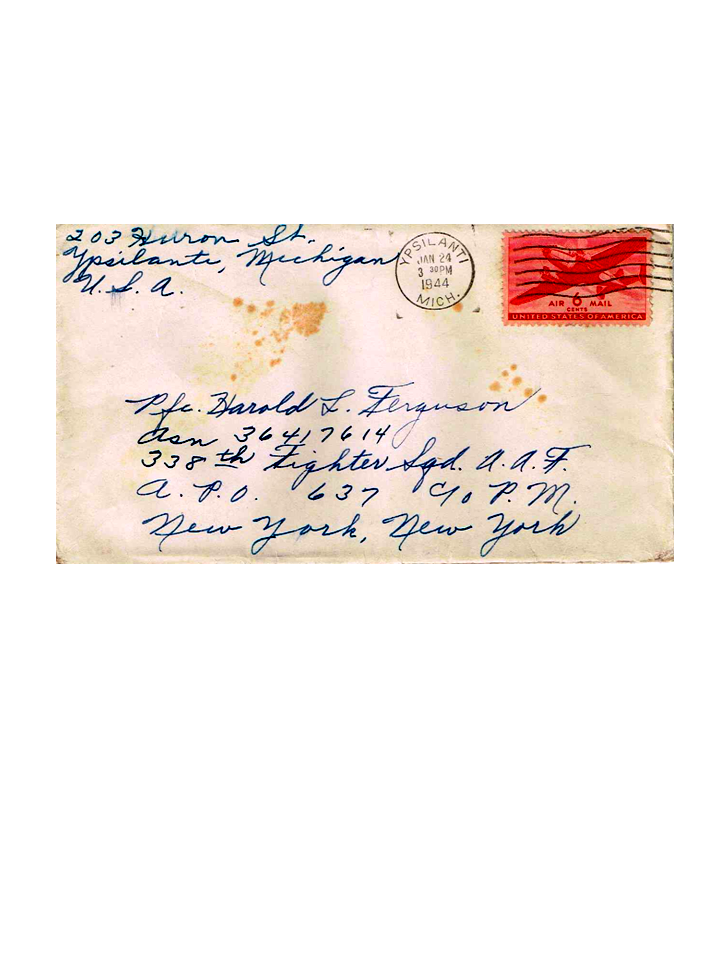 203 Huron St.
Ypsilante, Michigan
U. S. A.
YPSILANTI
JAN 24
3 30PM
1944
MICH.
AIR 6 MAIL
CENTS
UNITED STATES OF AMERICA
Pfc. Harold L. Ferguson
asn 36417614
338 th Fighter Sqd. A. A. F.
A. P. O. 637 C/o P. M.
New York, New York